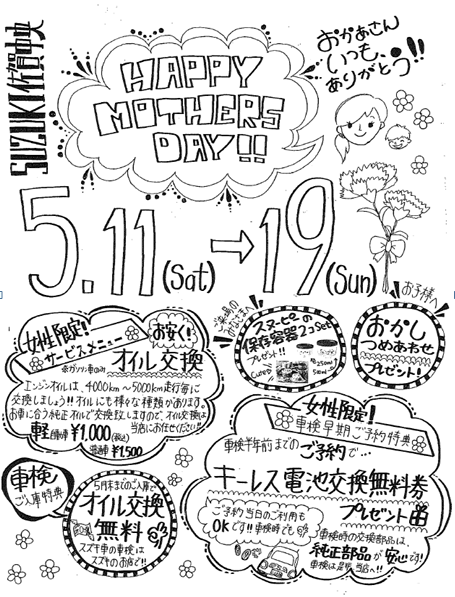 SUZUKI佐賀中央
HAPPY
MOTHERS
DAY!!
おかあさん
いつも、
ありがとう!!
5.11(Sat)→19(Sun)
女性限定!
サービスメニュー
お安く!
オイル交換
エンジンオイルは、4000km〜5000km走行毎に
交換しましょう!!オイルにも様々な種類があります。
お車に合う純正オイルで交換致しますので、オイル交換は
当店にお任せください!!
軽自動車 ¥1,000(税込)
普通車 ¥1,500
スヌーピーの
保存容器2コset
プレゼント!!
お子様へ
おかし
つめあわせ
プレゼント!
女性限定!
車検早期ご予約特典
車検半年前までの
ご予約で…
キーレス電池交換無料券
プレゼント
ご予約当日のご利用も
OKです!!車検時でも
車検時の交換部品は、
純正部品が安心です!
車検は是非当店へ!!
車検
ご入庫特典
5月末までのご入庫で
オイル交換
無料
スズキ車の車検は
スズキのお店で!!